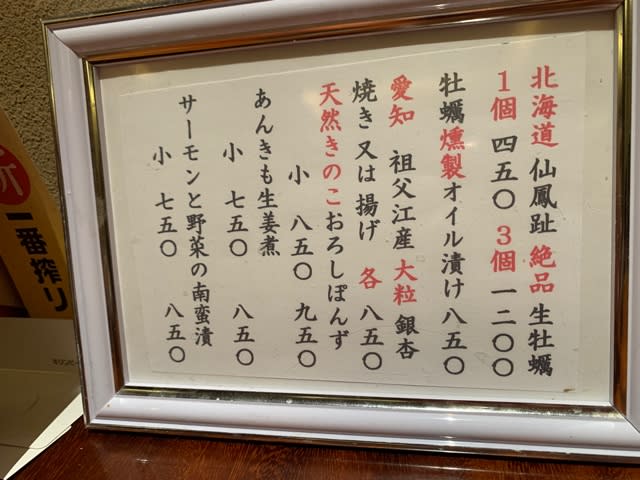 北海道 仙鳳趾 絶品 生牡蠣
1個 四五〇 3個 一二〇〇
牡蠣燻製オイル漬け 八五〇
愛知 祖父江産 大粒 銀杏
焼き又は揚げ 各 八五〇
天然きのこおろしぽんず
小 八五〇 九五〇
あんきも生姜煮
小 七五〇 八五〇
サーモンと野菜の南蛮漬
小 七五〇 八五〇
一番搾り